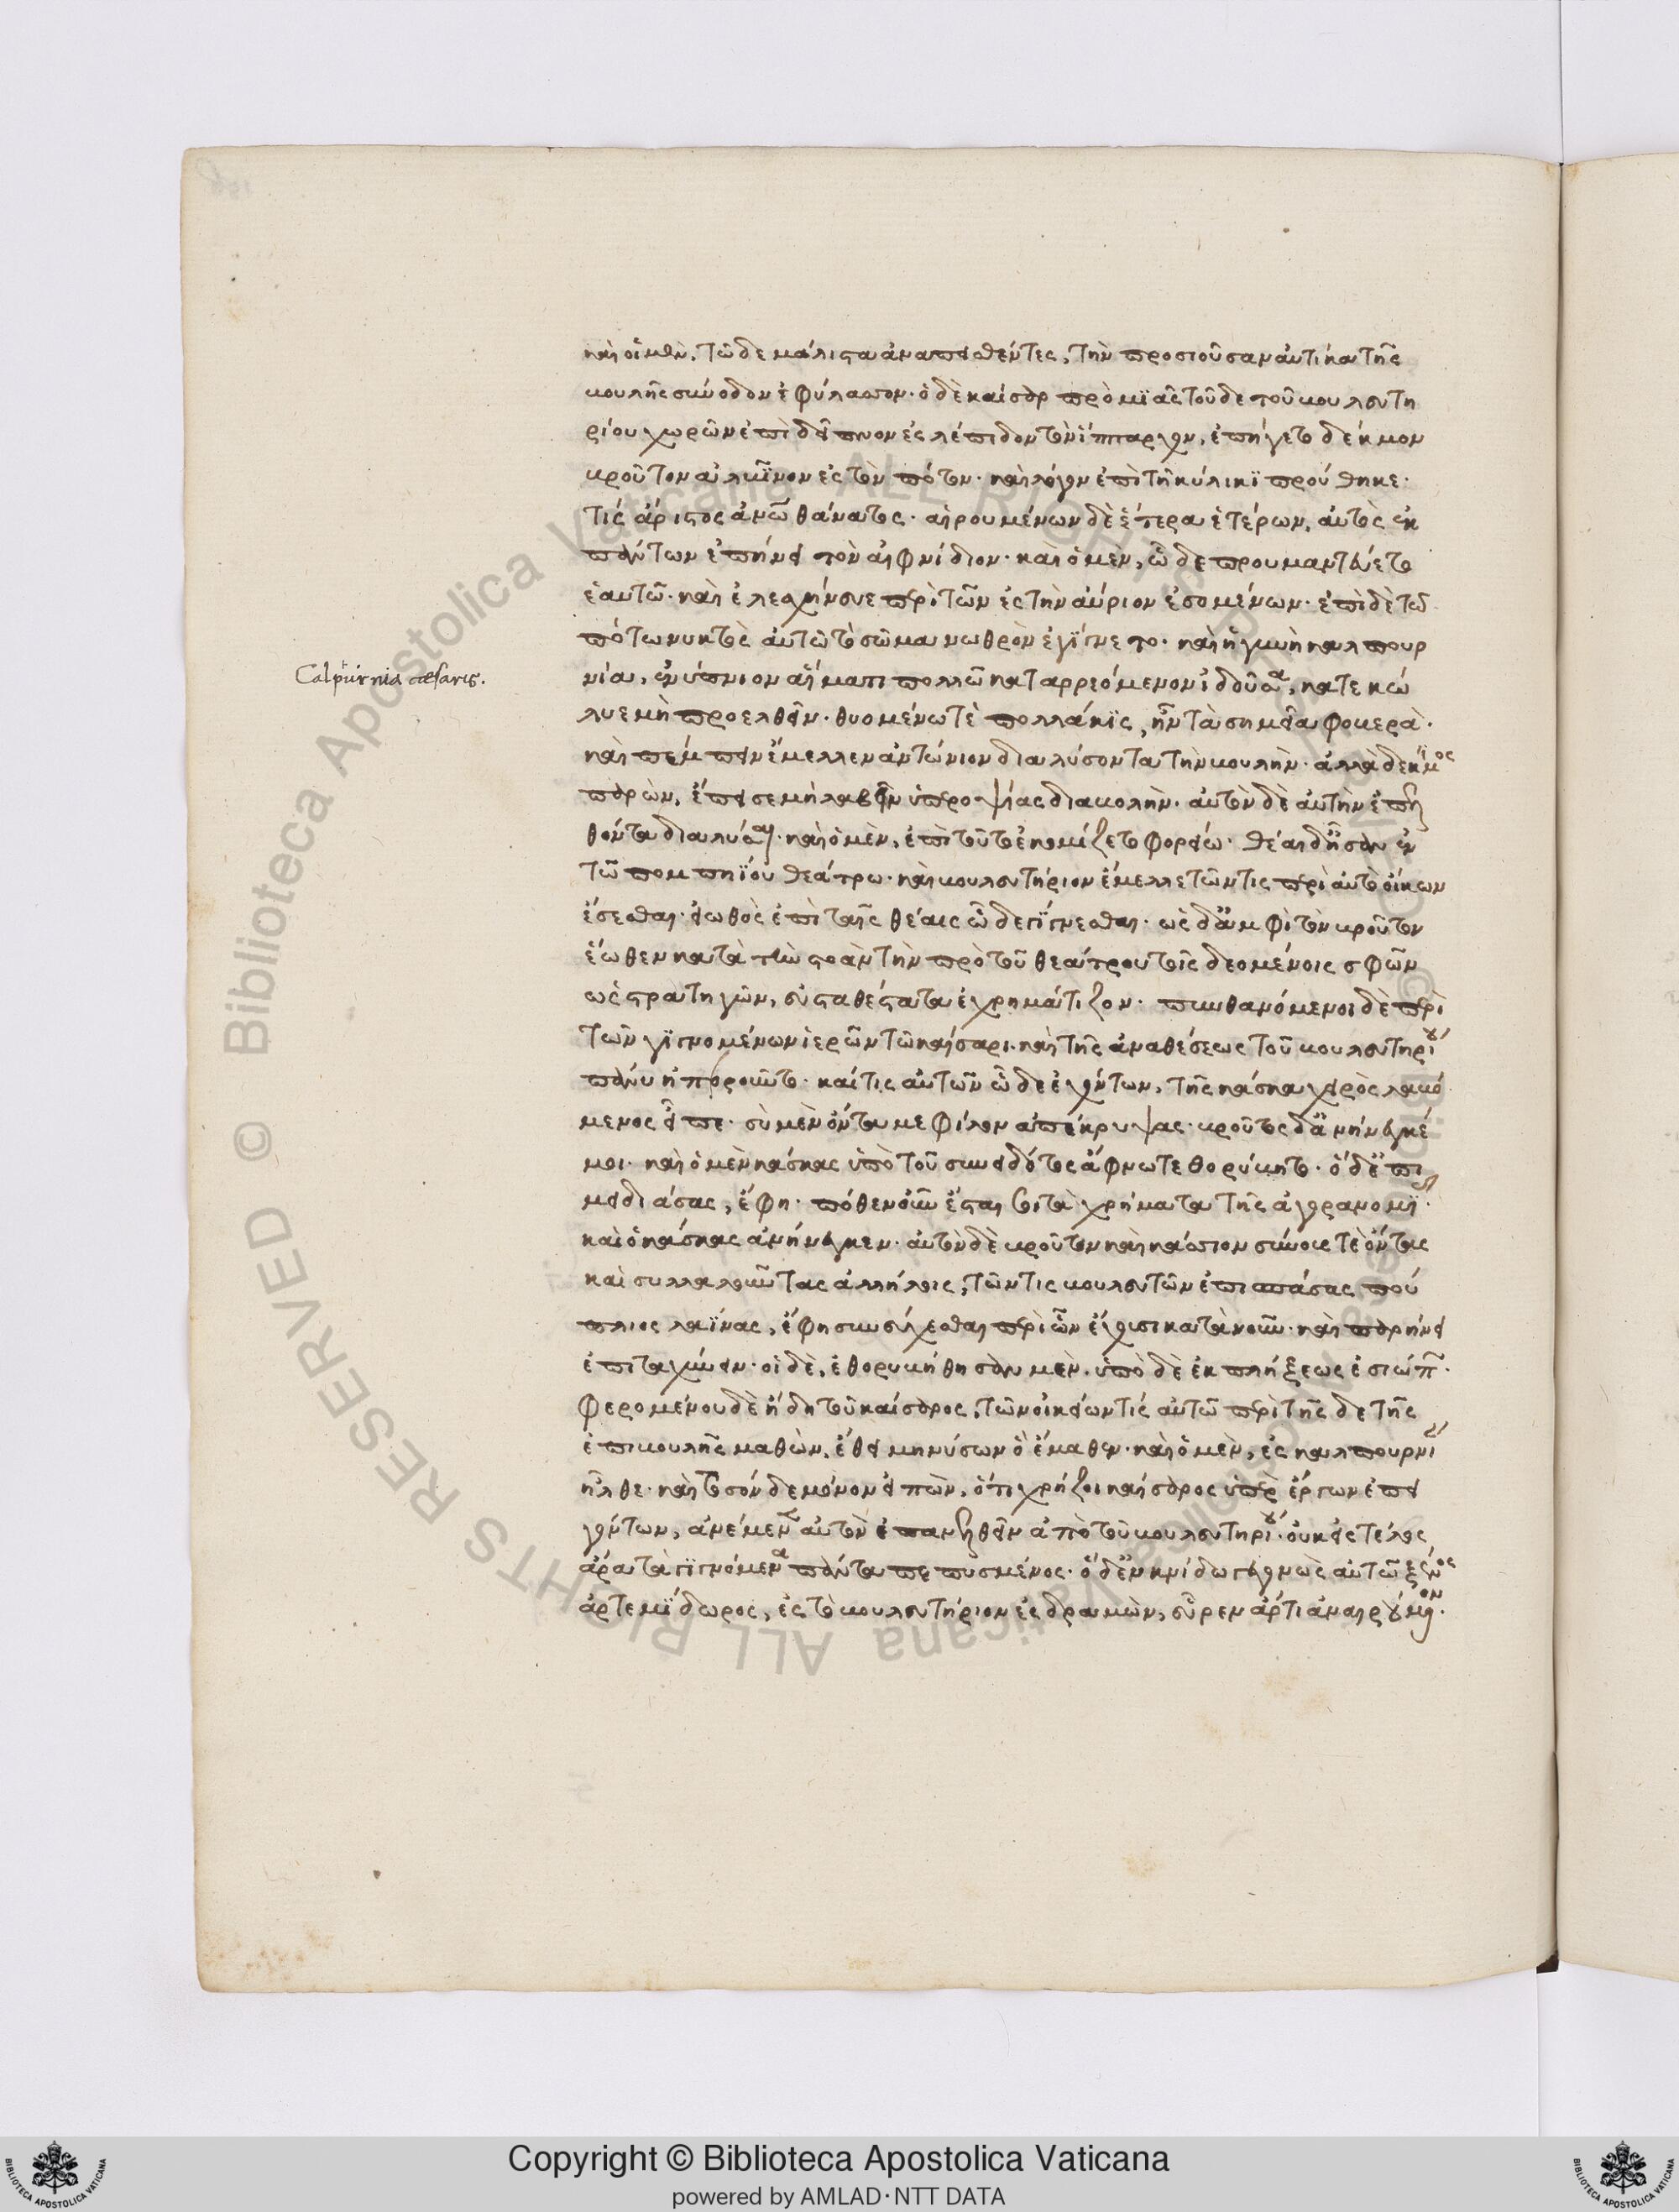 καὶ οἱ μὲν, τῶδε μάλιστα ἀναπεισθέντες, τὴν προσιοῦσαν αὐτίκα τῆς
βουλῆς σύνοδον ἐφύλασσον· ὁ δὲ καῖσαρ πρὸ μϊᾶς τοῦδε τοῦ βουλευτη
ρίου χωρῶν ἐπὶ δεῖπνον ἐς λέπιδον τὸν ἵππαρχον, ἐπήγετο δέκμον
βροῦτον ἀλβῖνον ἐς τὸν πότον· καὶ λόγον ἐπὶ τῆ κύλικϊ προύθηκε·
τίς ἄριστος ἀνω θάνατος· αἱρουμένων δὲ ἕτερα ἑτέρων, αὐτὸς ἐκ
πάντων ἐπήνει τὸν αἰφνίδιον· καὶ ὁ μὲν, ὧδε προυμαντεύετο
ἑαυτῶ· καὶ ἐλεσχήνευε περὶ τῶν ἐς τὴν αὔριον ἐσομένων· ἐπὶ δὲ τῶ
πότω νυκτὸς αὐτῶ τὸ σῶμα νωθρὸν ἐγίγνετο· καὶ ἡ γυνὴ καλπουρ
Calpúrnia cæsaris.
νία, ἐνύπνιον αἵματι πολλῶ καταρρεόμενον ἰδοῦσα, κατεκώ
λυε μὴ προελθεῖν· θυομένω τὲ πολλάκϊς, ἦν τὰ σημεῖα φοβερὰ·
καὶ πέμπειν ἔμελλεν ἀντώνιον διαλύσοντα τὴν βουλὴν· ἀλλὰ δέκϊμος
παρὼν, ἔπεισε μὴ λαβεῖν ὑπεροψίας διαβολὴν· αὐτὸν δὲ αὐτὴν ἐπελ
θόντα διαλῦσαι· καὶ ὁ μὲν, ἐπὶ τοῦτο ἐκομίζετο φορείω· θέαι δ' ἦσαν ἐν
τῶ πομπηΐου θεάτρω· καὶ βουλευτήριον ἔμελλε τῶν τις περὶ αὐτὸ οἴκων
ἔσεσθαι· εἰωθὸς ἐπὶ ταῖς θέαις ὧδε γίγνεσθαι· ὡς δ' ἀμφὶ τὸν βροῦτον
ἕωθεν κατὰ τὴν στοὰν τὴν πρὸ τοῦ θεάτρου τοῖς δεομένοις σφῶν
ὡς στρατηγῶν, εὐσταθέστατα ἐχρημάτιζον· πυνθανόμενοι δὲ περὶ
τῶν γϊγνομένων ἱερῶν τῶ καίσαρι καὶ τῆς ἀναθέσεως τοῦ βουλευτηρίου
πάνυ ἠποροῦντο· καί τις αὐτῶν ὧδε ἐχόντων, τῆς κάσκα χειρὸς λαβό
μενος εἶπε· σὺ μὲν ὄντα με φίλον ἀπέκρυψας· βροῦτος δ' ἀνήνεγκέ
μοι· καὶ ὁ μὲν κάσκας ὑπὸ τοῦ συνειδότος ἄφνω τεθορύβητο· ὁ δ' ἐπι
μειδιάσας, ἔφη· πόθεν οὖν ἔσται σοι τὰ χρήματα τῆς ἀγορανομϊ·
καὶ ὁ κάσκας ἀνήνεγκεν· αὐτὸν δὲ βροῦτον καὶ κάσσιον σύνους τὲ ὄντας
καὶ συλλαλοῦντας ἀλλήλοις, τῶν τις βουλευτῶν ἐπισπάσας πού
πλιος λαϊνας, ἔφη συνεύχεσθαι περὶ ὧν ἔχουσι κατὰ νοῦν· καὶ παρήνει
ἐπιταχύνειν· οἱ δὲ, ἐθορυβήθησαν μὲν· ὑπὸ δὲ ἐκπλήξεως ἐσιώπ·
φερομένου δὲ ἤδη τοῦ καίσαρος, τῶν οἰκείων τίς αὐτῶ περὶ τῆσδε τῆς
ἐπιβουλῆς μαθὼν, ἔθει μηνύσων ὃ ἔμαθεν· καὶ ὁ μὲν, ἐς καλπουρνί
ἦλθε· καὶ τοσόνδε μόνον εἰπὼν, ὅτι χρήζοι καίσαρος ὑπὲρ ἔργων ἐπει
γόντων, ἀνέμενεν αὐτὸν ἐπανελθεῖν ἀπὸ τοῦ βουλευτηρίου· οὐκ ἐς τέλος
ἄρα τὰ γϊγνόμενα πάντα πεπυσμένος· ὁ δ' ἐν κνίδω γεγονὼς αὐτῶ ξένος
ἀρτεμίδωρος, ἐς τὸ βουλευτήριον ἐσδραμὼν, εὗρεν ἄρτι ἀναιρούμενον·
Copyright © Biblioteca Apostolica Vaticana
powered by AMLAD·NTT DATA